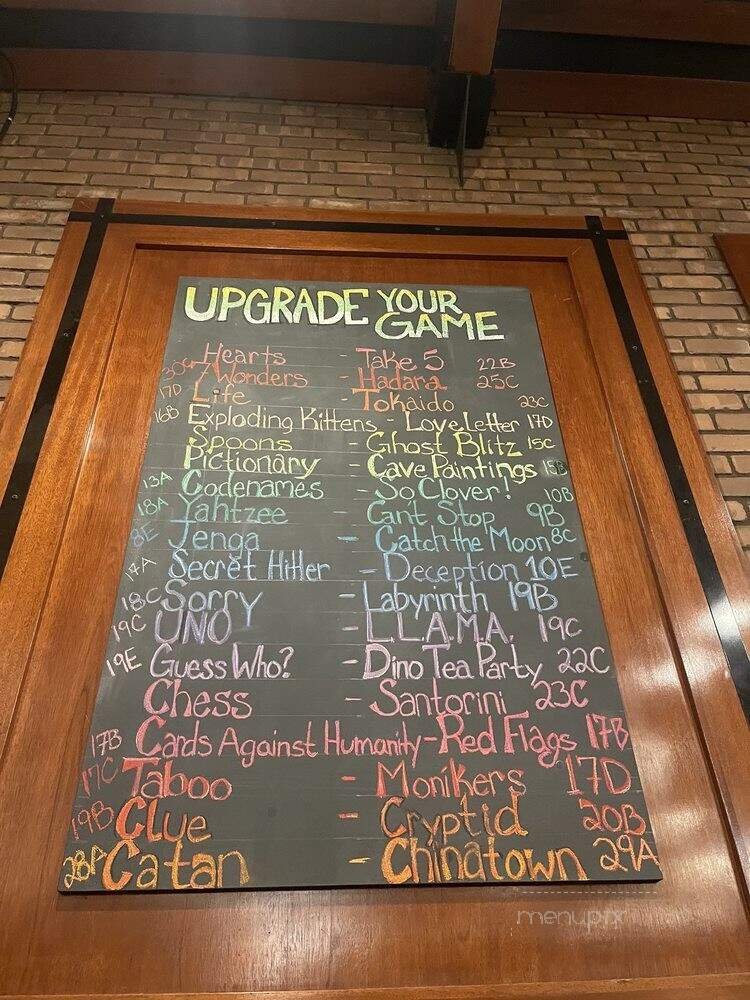 UPGRADE YOUR GAME
Hearts - Take 5 22B
30C 7 Wonders - Hadara 25C
17D Life - Tokaido 23C
16B Exploding Kittens - Love Letter 17D
Spoons - Ghost Blitz 15C
Pictionary - Cave Paintings 15B
13A Codenames - So Clover! 10B
18A Yahtzee - Can't Stop 9B
8E Jenga - Catch the Moon 8C
17A Secret Hitler - Deception 10E
18C Sorry - Labyrinth 19B
19C UNO - L.L.A.M.A. 19C
19E Guess Who? - Dino Tea Party 22C
Chess - Santorini 23C
17B Cards Against Humanity - Red Flags 17B
17C Taboo - Monikers 17D
19B Clue - Cryptid 20B
28A Catan - Chinatown 29A
menupix